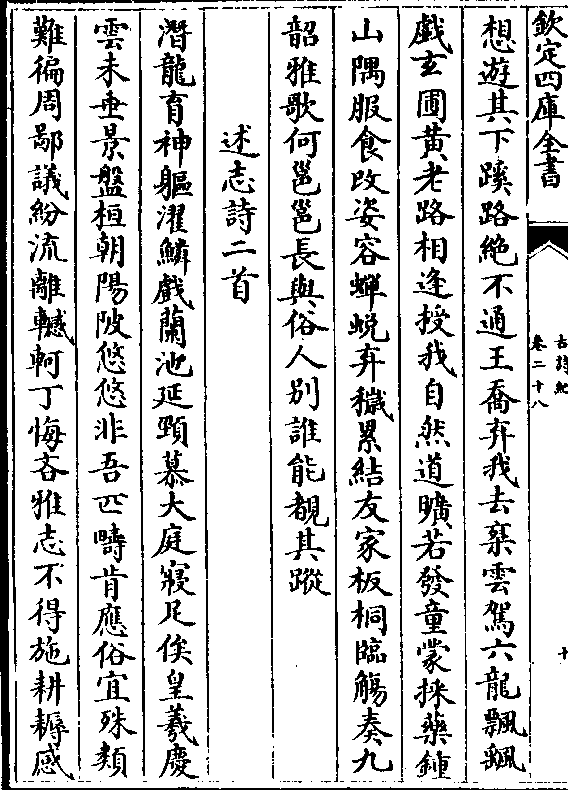 欽定四庫全書
古詩紀
卷二十八
十
想遊其下蹊路絶不通王喬弃我去椉雲駕六龍飄颻
戲𤣥圃黄老路相逢授我自然道曠若發童蒙採藥鍾
山隅服食改姿容蟬蛻弃穢累結友家板桐臨觴奏九
韶雅歌何邕邕長與俗人别誰能覩其蹤
述志詩二首
潛龍育神軀濯鱗戲蘭池延頸慕大庭寢足俟皇羲慶
雲未垂景盤桓朝陽陂悠悠非吾匹疇肯應俗宜殊類
難徧周鄙議紛流離轗軻丁悔吝雅志不得施耕耨感